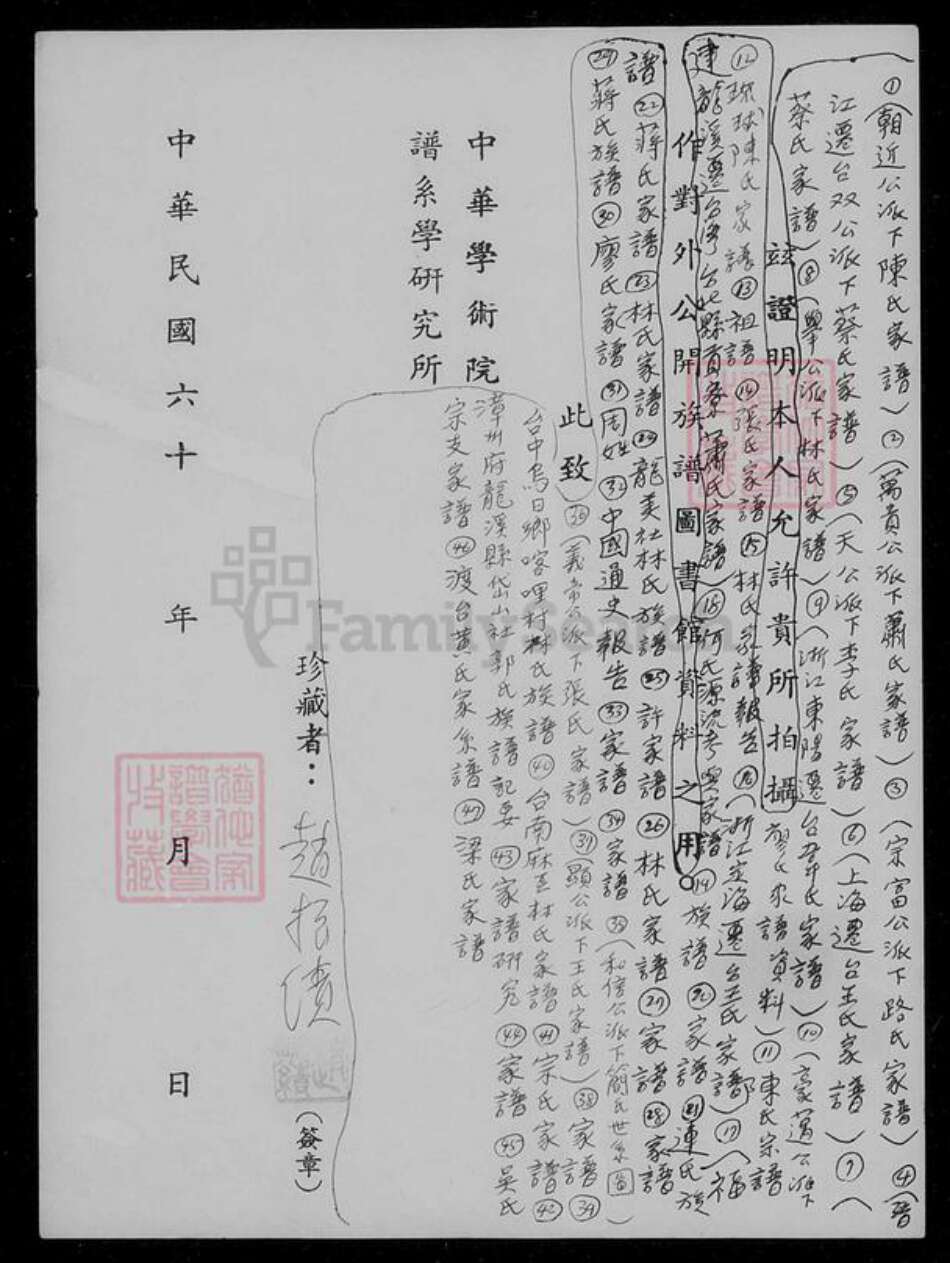 ①(朝近公派下陳氏家譜)②(萬貴公派下蕭氏家譜)③(宗富公派下路氏家譜)④(晉
江遷台双公派下蔡氏家譜)⑤(天公派下李氏家譜)⑥(上海遷台王氏家譜)⑦(
蔡氏家譜)⑧(舉公派下林氏家譜)⑨(浙江東陽遷台 氏家譜)⑩(豪邁公派下
廖氏家譜資料)⑪陳氏宗譜
茲證明本人允許貴所拍攝
⑫琉球陳氏家譜⑬祖譜⑭張氏家譜⑮林氏家譜報告⑯(浙江定海遷台王氏家譜)⑰(福
建龍溪遷台灣台北縣貢寮蕭氏家譜)⑱何氏源流考與家譜⑲族譜⑳家譜㉑連氏族
作對外公開族譜圖書館資料之用。
譜㉒蔣氏家譜㉓林氏家譜㉔龍美社林氏族譜㉕許家譜㉖林氏家譜㉗家譜㉘家譜
㉙蔣氏族譜㉚廖氏家譜㉛周姓㉜中國通史報告㉝家譜㉞家譜㉟(和信公派下簡氏世系 )
此致
㊱(義帝公派下張氏家譜)㊲(顯公派下王氏家譜)㊳家譜㊴
台中烏日鄉喀哩村林氏族譜㊵台南麻豆林氏家譜㊶宗氏家譜㊷
漳州府龍溪縣岱山社郭氏族譜記要㊸家譜研究㊹家譜㊺吳氏
宗支家譜㊻渡台黃氏家系譜㊼梁氏家譜
中華學術院
譜系學研究所
珍藏者:趙振績
(簽章)
中華民國六十年 月 日